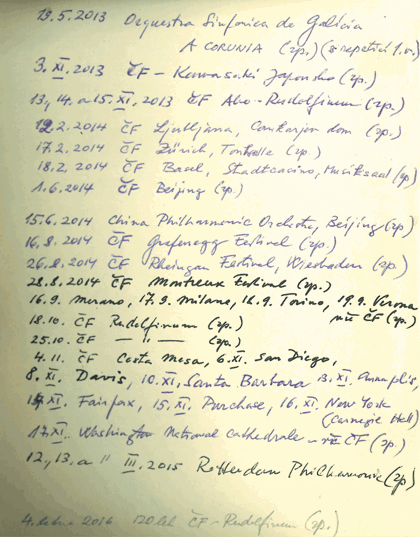 19.5.2013 Orquestra Sinfonica de Galicia
A CORUNIA (zp.) (a repetice 1.v.)
3. XI. 2013 ČF – Kawasaki Japonsko (zp.)
13, 14. a 15. XI. 2013 ČF Abo-Rudolfinum (zp.)
12.2.2014 ČF Ljubljana, Cankarjev dom (zp.)
17.2.2014 ČF Zürich, Tonhalle (zp.)
18.2.2014 ČF Basel, Stadtcasino, Musiksaal (zp)
1.6.2014 ČF Beijing (zp.)
15.6.2014 China Philharmonic Orchestra, Beijing (zp)
16.8.2014 ČF Grafenegg Festival (zp.)
26.8.2014 ČF Rheingau Festival, Wiesbaden (zp.)
28.8.2014 ČF Montreux Festival (zp.)
16.9. Merano, 17.9. Milano, 18.9. Torino, 19.9. Verona
vše ČF (zp.)
18.10. ČF Rudolfinum (zp.)
25.10. ČF — " — (zp.)
4.11. ČF Costa Mesa, 6.XI. San Diego,
8.XI. Davis, 10.XI. Santa Barbara 13.XI. Annapolis,
14.XI. Fairfax, 15.XI. Purchase, 16.XI. New York
(Carnegie Hall)
17.XI. Washington National Cathedrale – vše ČF (zp.)
12, 13. a 15. III. 2015 Rotterdam Philharmonic (zp)
4. ledna 2016 120 let ČF – Rudolfinum (zp.)